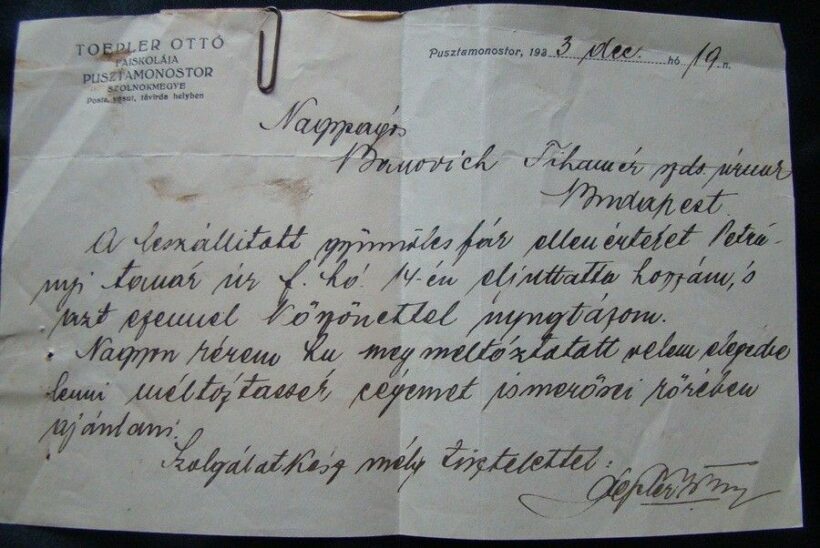 TOEPLER OTTÓ
FAISKOLÁJA
PUSZTAMONOSTOR
SZOLNOKMEGYE
Posta, vasut, távirda helyben
Pusztamonostor, 193 3 dec. hó 19. n.
Nagyságos
Tihamér úrnak
Budapest.
A leszállitott gyümölcsfák ellenértékét Petrá-
nyi tanár úr f. hó 14-én eljuttatta hozzám, s
azt ezennel köszönettel nyugtázom.
Nagyon kérem ha meg méltóztatott velem elégedve
lenni méltóztassék cégemet ismerősei körében
ajánlani.
Szolgálatkész mély tisztelettel: